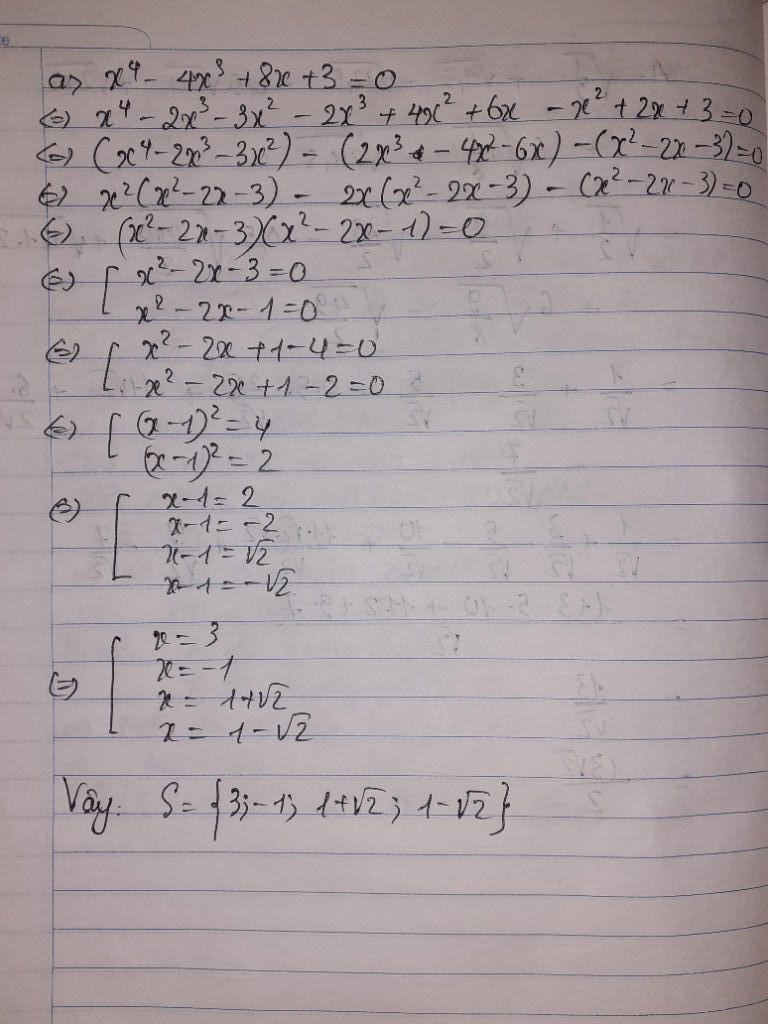 a> x⁴ - 4x³ + 8x + 3 = 0
<=> x⁴ - 2x³ - 3x² - 2x³ + 4x² + 6x - x² + 2x + 3 = 0
<=> (x⁴ - 2x³ - 3x²) - (2x³ - 4x² - 6x) - (x² - 2x - 3) = 0
<=> x²(x² - 2x - 3) - 2x(x² - 2x - 3) - (x² - 2x - 3) = 0
<=> (x² - 2x - 3)(x² - 2x - 1) = 0
<=> [ x² - 2x - 3 = 0
x² - 2x - 1 = 0
<=> [ x² - 2x + 1 - 4 = 0
x² - 2x + 1 - 2 = 0
<=> [ (x - 1)² = 4
(x - 1)² = 2
<=> [ x - 1 = 2
x - 1 = -2
x - 1 = √2
x - 1 = -√2
<=> [ x = 3
x = -1
x = 1 + √2
x = 1 - √2
Vậy: S = {3; -1; 1 + √2; 1 - √2}